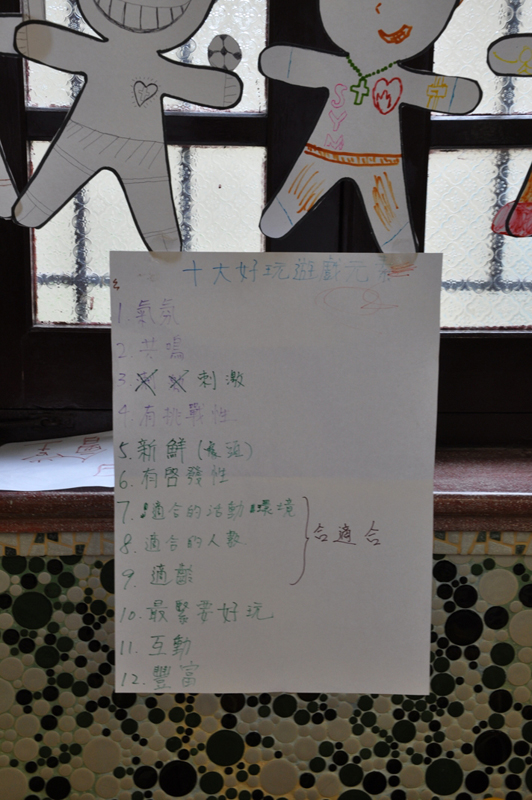 SYM
十大好玩遊戲元素
1. 氣氛
2. 共鳴
3. 刺激
4. 有挑戰性
5. 新鮮(
6. 有啓發性
7. 適合的活動環境
8. 適合的人數
9. 適齡
合適合
10. 最緊要好玩
11. 互動
12. 豐富